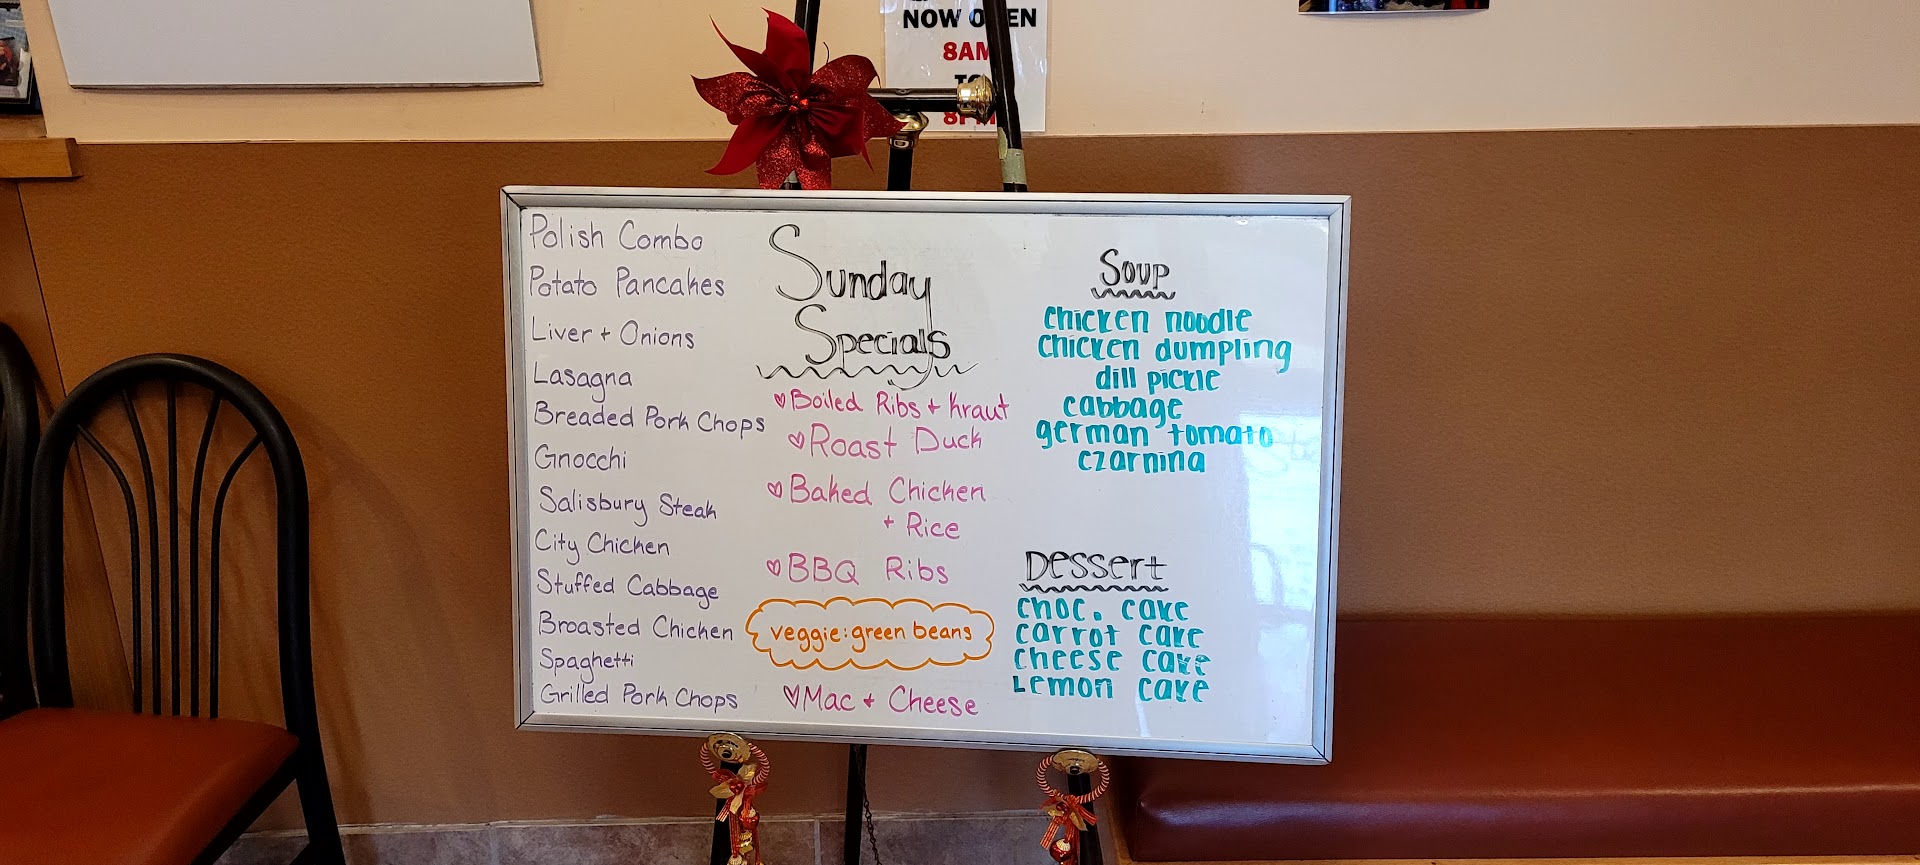 NOW OPEN
8AM
TO
8PM
Polish Combo
Potato Pancakes
Liver + Onions
Lasagna
Breaded Pork Chops
Gnocchi
Salisbury Steak
City Chicken
Stuffed Cabbage
Broasted Chicken
Spaghetti
Grilled Pork Chops
Sunday
Specials
♡Boiled Ribs + Kraut
♡Roast Duck
♡Baked Chicken
+ Rice
♡BBQ Ribs
veggie: green beans
♡Mac + Cheese
Soup
chicken noodle
chicken dumpling
dill pickle
cabbage
german tomato
czarnina
Dessert
choc. cake
carrot cake
cheese cake
Lemon cake